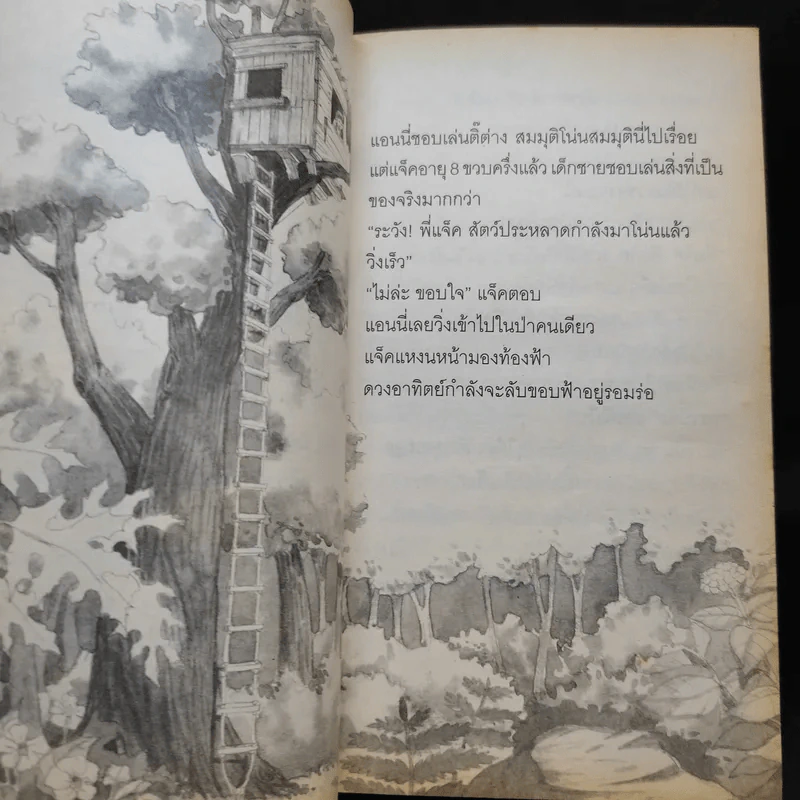 แอนนี่ชอบเล่นติ๊ต่าง สมมุติโน่นสมมุตินี่ไปเรื่อย
แต่แจ็คอายุ 8 ขวบครึ่งแล้ว เด็กชายชอบเล่นสิ่งที่เป็น
ของจริงมากกว่า
“ระวัง! พี่แจ็ค สัตว์ประหลาดกำลังมาโน่นแล้ว
วิ่งเร็ว”
“ไม่ล่ะ ขอบใจ” แจ็คตอบ
แอนนี่เลยวิ่งเข้าไปในป่าคนเดียว
แจ็คแหงนหน้ามองท้องฟ้า
ดวงอาทิตย์กำลังจะลับขอบฟ้าอยู่รอมร่อ